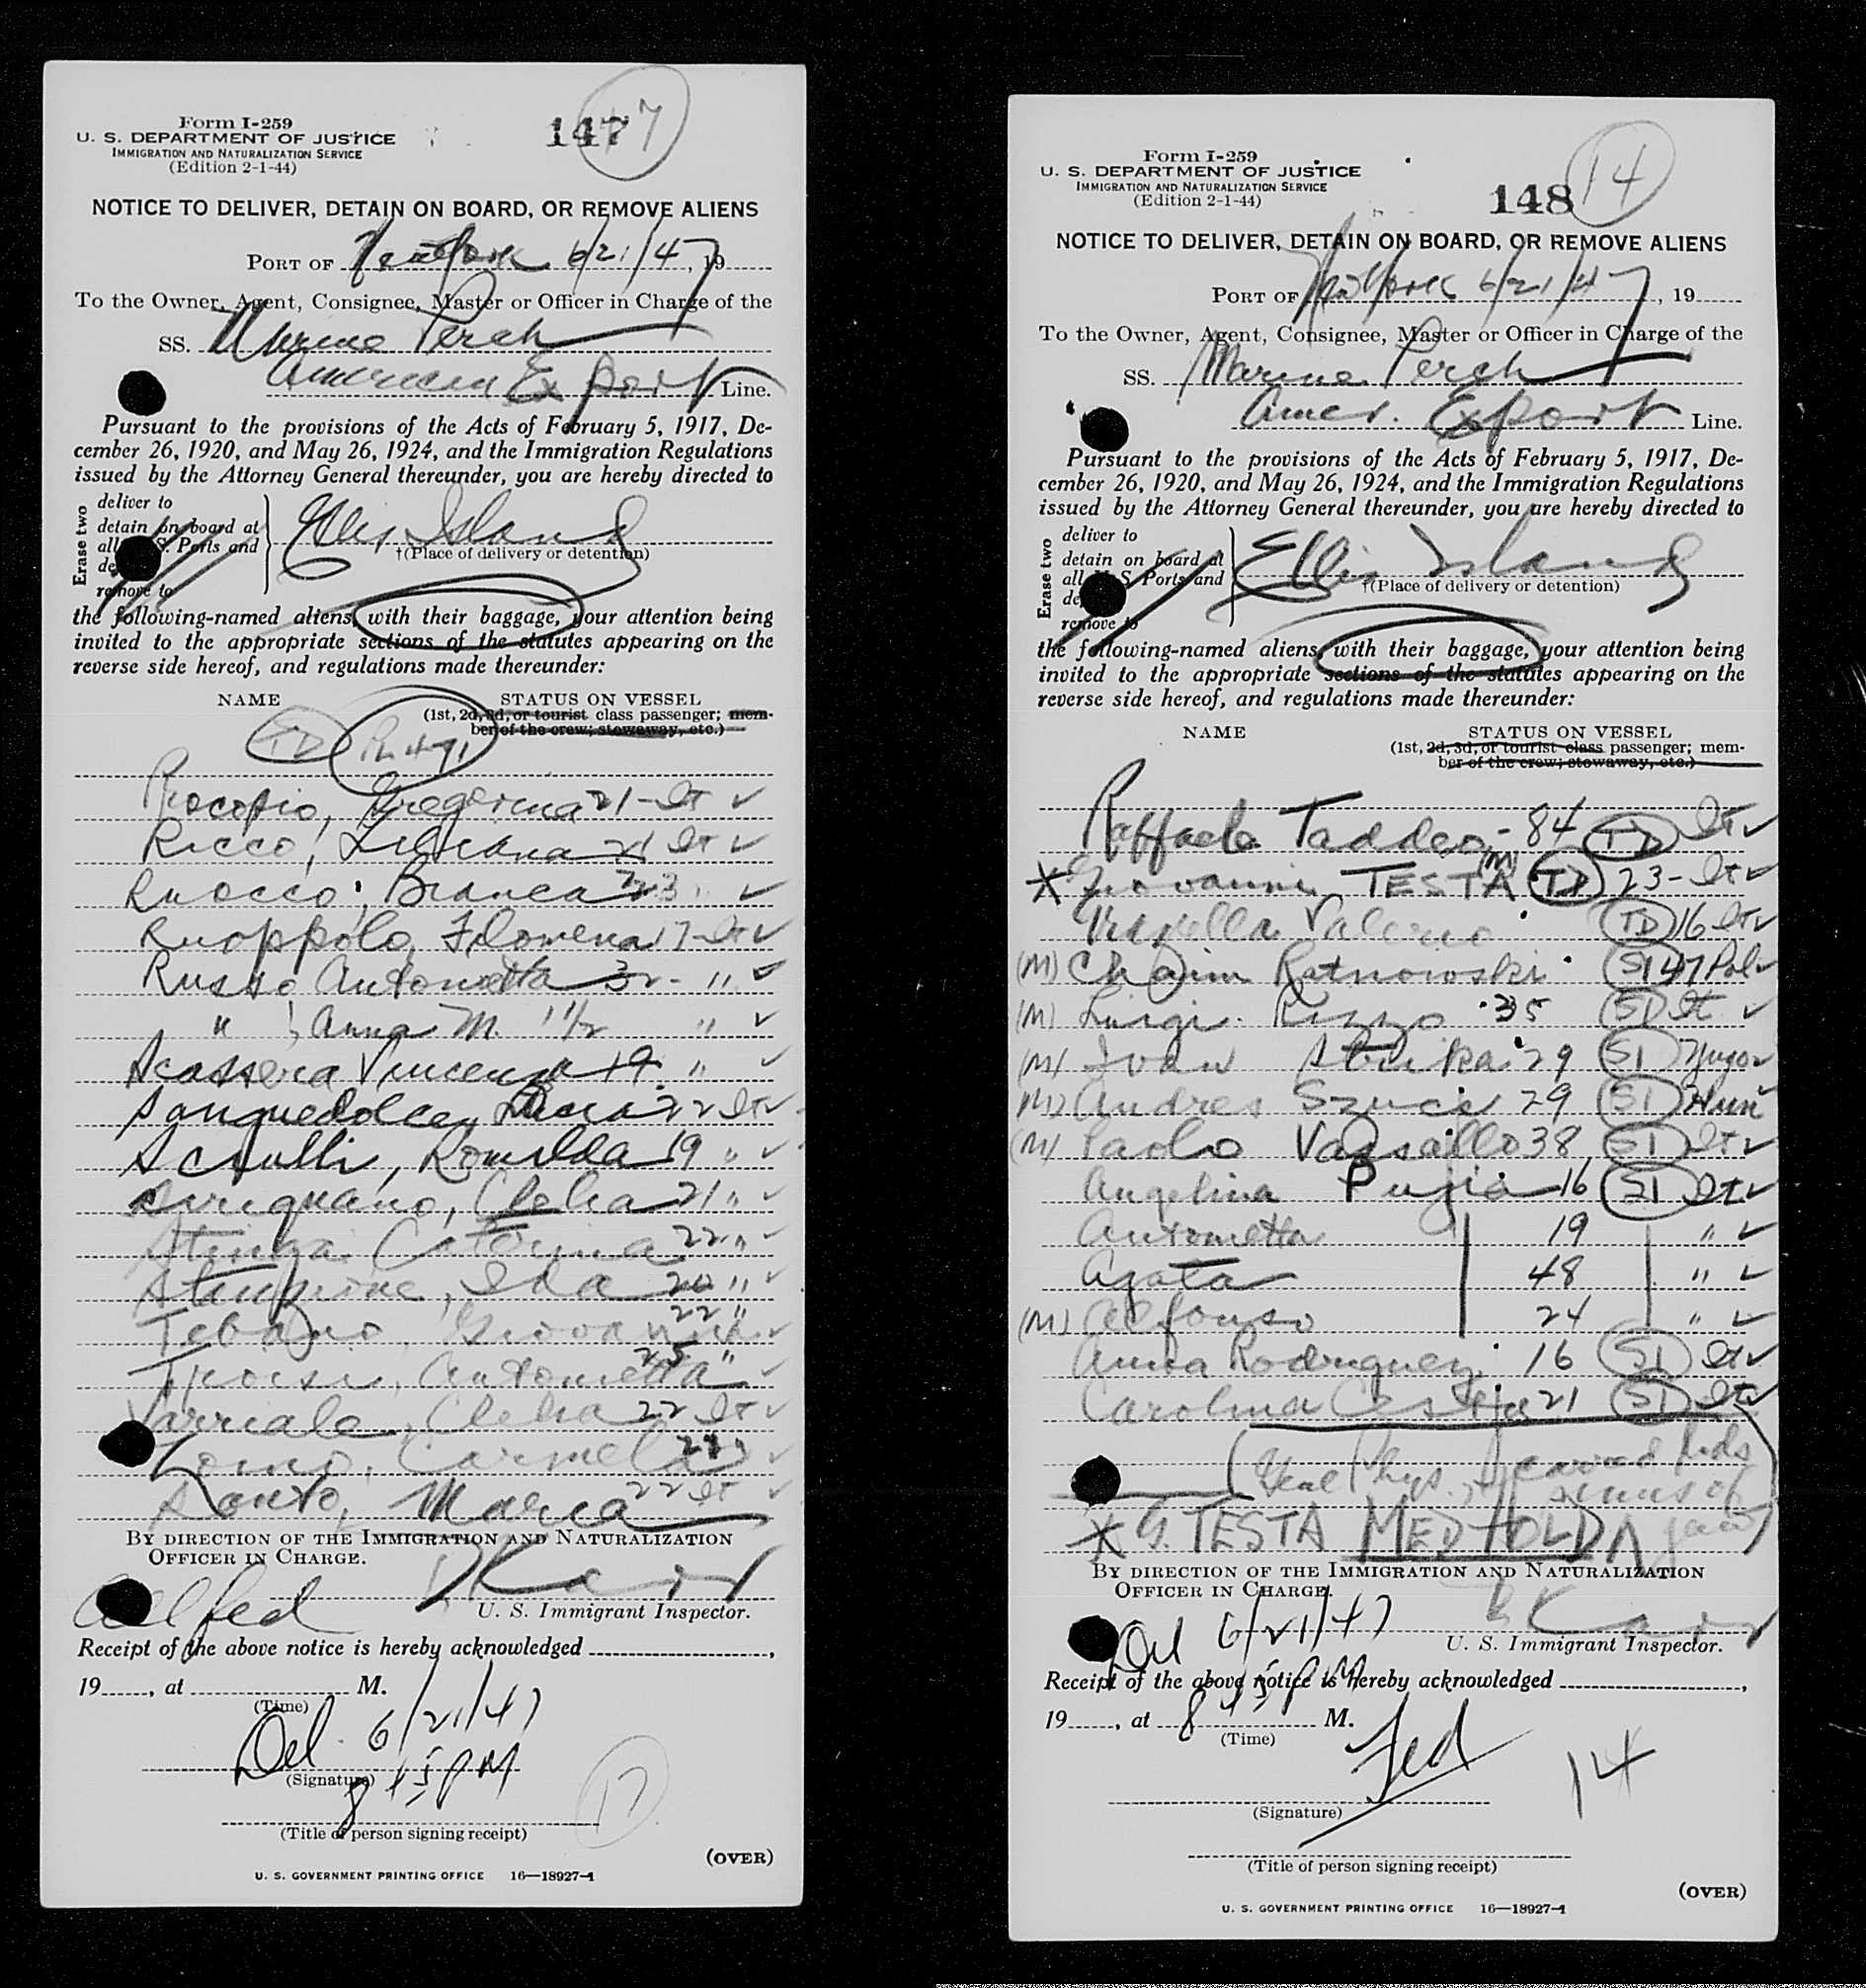 Form I-259
U. S. DEPARTMENT OF JUSTICE
IMMIGRATION AND NATURALIZATION SERVICE
(Edition 2-1-44)
147
17
NOTICE TO DELIVER, DETAIN ON BOARD, OR REMOVE ALIENS
PORT OF New York 6/21/47, 19
To the Owner, Agent, Consignee, Master or Officer in Charge of the
SS. Marine Perch
American Export Line.
Pursuant to the provisions of the Acts of February 5, 1917, De-
cember 26, 1920, and May 26, 1924, and the Immigration Regulations
issued by the Attorney General thereunder, you are hereby directed to
Erase two
deliver to
detain on board at
all S. Ports and
de
remove to
Ellis Island
†(Place of delivery or detention)
the following-named aliens, with their baggage, your attention being
invited to the appropriate sections of the statutes appearing on the
reverse side hereof, and regulations made thereunder:
NAME STATUS ON VESSEL
(1st, 2d, 3d, or tourist class passenger; mem-
ber of the crew; stowaway, etc.)
TD PL 471
Procopio, Gregorina 21 - It ✓
Ricco, Liliana 21 It ✓
Ruocco, Bianca 23 " ✓
Ruoppolo, Filomena 17 - It ✓
Russo Antonietta 32 - " ✓
" , Anna M. 1 1/2 " ✓
Scassera Vincenza 19 " ✓
Sanguedolce, 22 It ✓
Sciulli, Romilda 19 " ✓
Sirignano, Clelia 21 " ✓
Stinga, Caterina 22 " ✓
Stampone, Ida 20 " ✓
Tebano, Giovanna 22 " ✓
Troisi, Antonietta 25 " ✓
Varriale, Clelia 22 It ✓
Zomo, Carmela " ✓
Santo, Maria 22 It ✓
BY DIRECTION OF THE IMMIGRATION AND NATURALIZATION
OFFICER IN CHARGE.
All fed
U. S. Immigrant Inspector.
Receipt of the above notice is hereby acknowledged
19, at M.
(Time)
Del. 6/21/47
(Signature)
8 45 PM
17
(Title of person signing receipt)
(OVER)
U. S. GOVERNMENT PRINTING OFFICE 16—18927-1
Form I-259
U. S. DEPARTMENT OF JUSTICE
IMMIGRATION AND NATURALIZATION SERVICE
(Edition 2-1-44)
148
14
NOTICE TO DELIVER, DETAIN ON BOARD, OR REMOVE ALIENS
PORT OF New York 6/21/47, 19
To the Owner, Agent, Consignee, Master or Officer in Charge of the
SS. Marine Perch
Amer. Export Line.
Pursuant to the provisions of the Acts of February 5, 1917, De-
cember 26, 1920, and May 26, 1924, and the Immigration Regulations
issued by the Attorney General thereunder, you are hereby directed to
Erase two
deliver to
detain on board at
all U. S. Ports and
de
remove to
Ellis Island
†(Place of delivery or detention)
the following-named aliens, with their baggage, your attention being
invited to the appropriate sections of the statutes appearing on the
reverse side hereof, and regulations made thereunder:
NAME STATUS ON VESSEL
(1st, 2d, 3d, or tourist class passenger; mem-
ber of the crew; stowaway, etc.)
Raffaela Taddeo - 84 TD It ✓
X Giovanni TESTA (M) TD 23 - It ✓
Valerio TD 16 It ✓
(M) Chaim Ratnowski SI 47 Pol ✓
(M) Luigi Rizzo 35 SI It ✓
(M) Ivan 29 SI Yugo ✓
(M) Andres Szucs 29 SI Hun ✓
(M) Paolo Vassallo 38 SI It ✓
Angelina Pujia 16 SI It ✓
Antonietta 19 " ✓
Agata 48 " ✓
(M) Alfonso 24 " ✓
Anna Rodriguez 16 SI It ✓
Carolina 21 SI It ✓
X G. TESTA MED HOLD
BY DIRECTION OF THE IMMIGRATION AND NATURALIZATION
OFFICER IN CHARGE.
Del 6/21/47
U. S. Immigrant Inspector.
Receipt of the above notice is hereby acknowledged
19, at 8 45 PM M.
(Time)
Fed
14
(Signature)
(Title of person signing receipt)
(OVER)
U. S. GOVERNMENT PRINTING OFFICE 16—18927-1